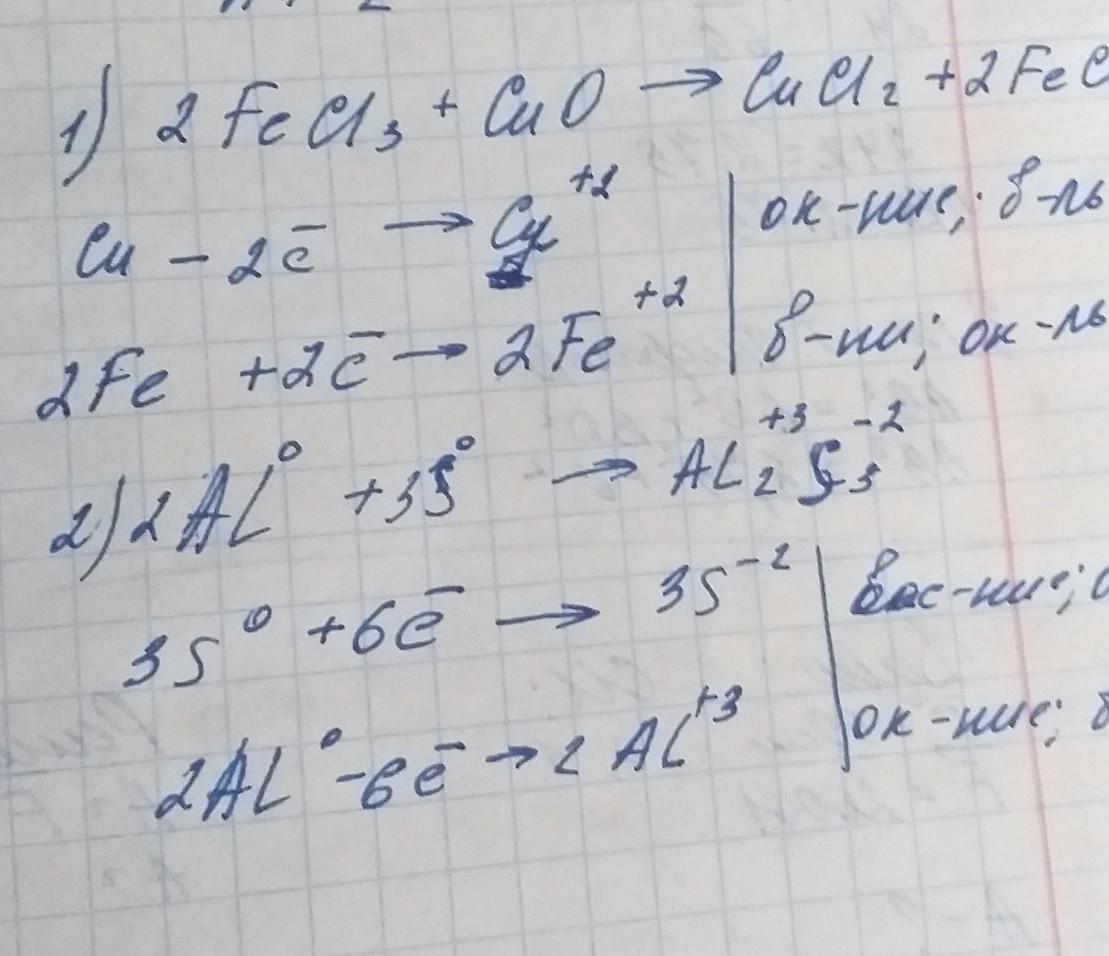 1) 2 FeCl₃ + CuO → CuCl₂ + 2FeC
Cu – 2ē → Cu⁺² | ок-ние; в-ль
2Fe +2ē → 2Fe⁺² | в-ни; ок-ль
2) 2AL⁰ +3S⁰ → AL₂⁺³S₃⁻²
3S⁰ +6ē → 3S⁻² | вос-ние;
2AL⁰ -6ē → 2AL⁺³ | ок-ние; в